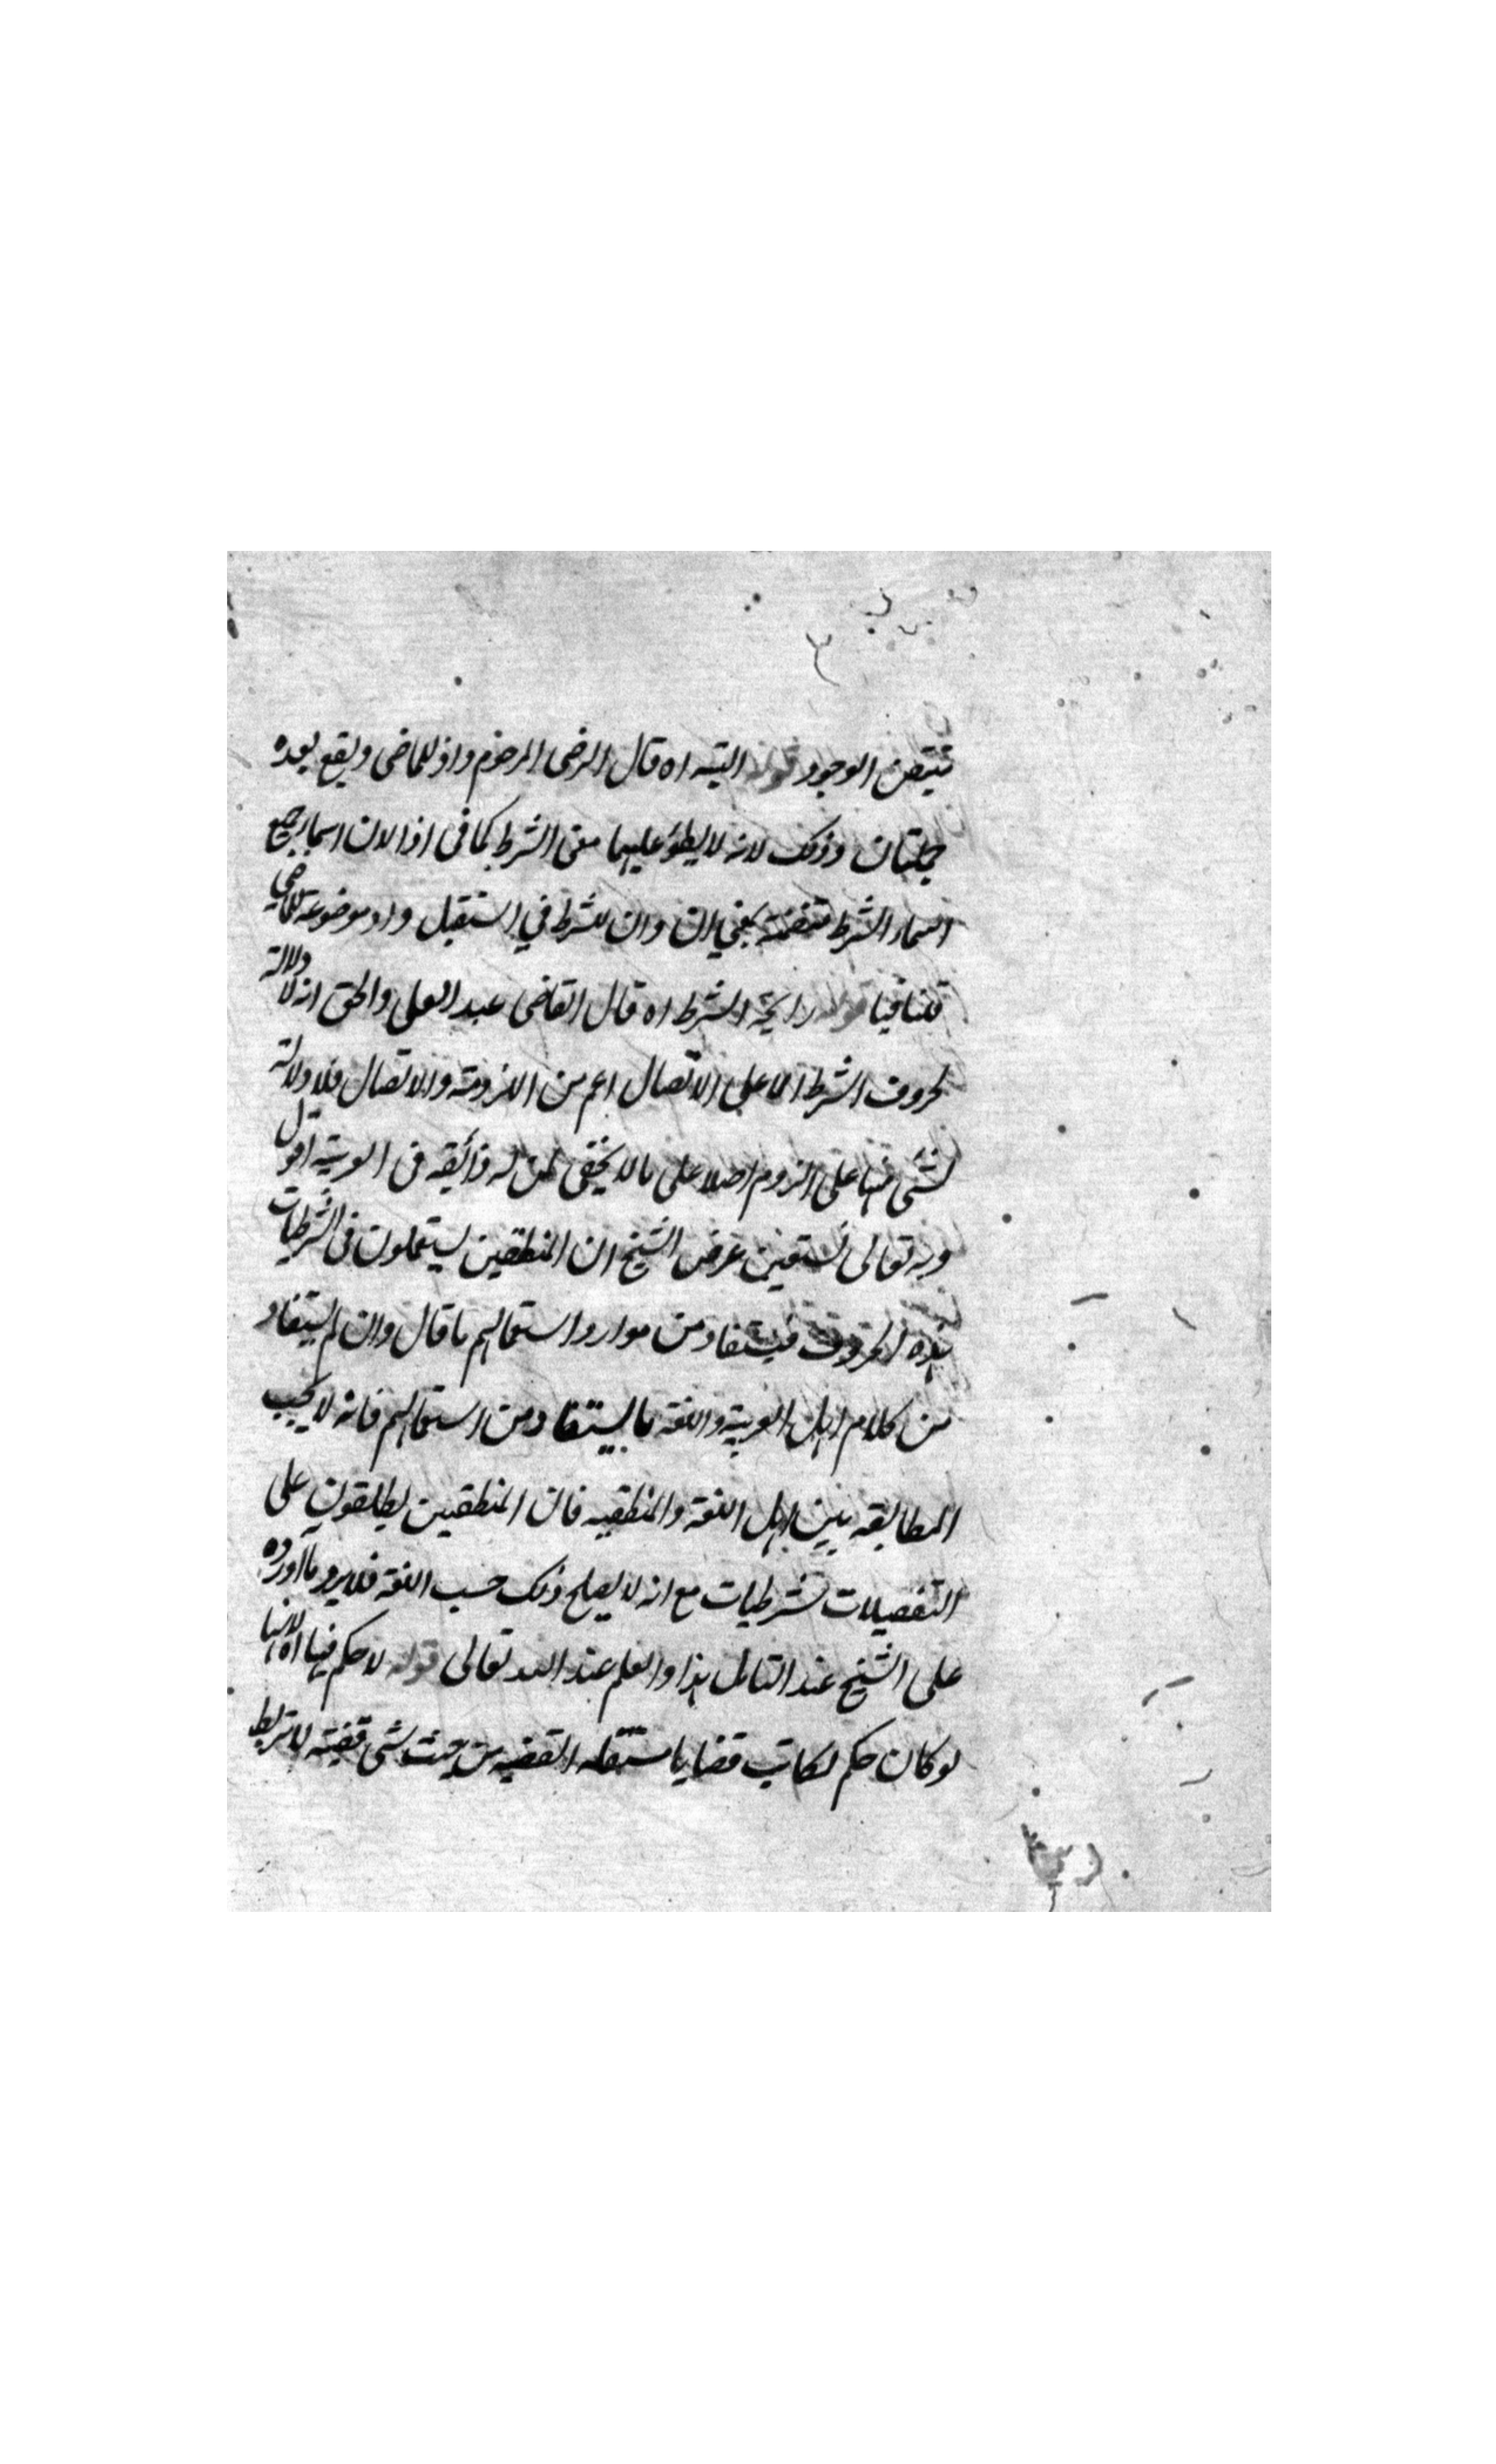 الوجود قوله البتة اه قال الرضي المرحوم واذ للماضي ويقع بعده
جملتان وذلك لانه لا يطرؤ عليها معنى الشرط كما في اذا لان اسما جميع
اسماء الشرط متضمنة بمعنى ان وان للشرط في المستقبل واذ موضوعة للماضي
فتنافيا قوله رايحة الشرط اه قال القاضي عبد العلي والحق انه لا دلالة
لحروف الشرط الا على الاتصال اعم من اللزومية والاتصال فلا دلالة
لشئ منها على اللزوم اصلا على ما لا يخفى لمن له ذائقة في العربية اقول
وبه تعالى نستعين غرض الشيخ ان المنطقين يستعملون في الشرطيات
هذه الحروف فيستفاد من موارد استعمالهم ما قال وان لم يستفاد
من كلام اهل العربية واللغة ما يستفاد من استعمالهم فانه لا يجب
المطابقة بين اهل اللغة والمنطقيه فان المنطقين يطلقون على
التفصيلات شرطيات مع انه لا يصلح ذلك حسب اللغة فلا يرد ما آورده
على الشيخ عند التامل هذا والعلم عند الله تعالى قوله لا حكم فيها اه لانها
لو كان حكم لكانت قضايا مستقله القضيه من حيث قضية لا تربط